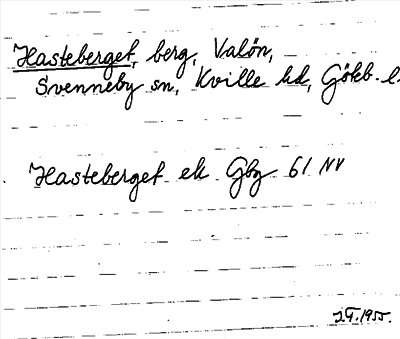 Hasteberget, berg, Valön,
Svenneby sn, Kville hd, Göteb. l.
Hasteberget ek Gbg 61 NV
J.G. 1955.